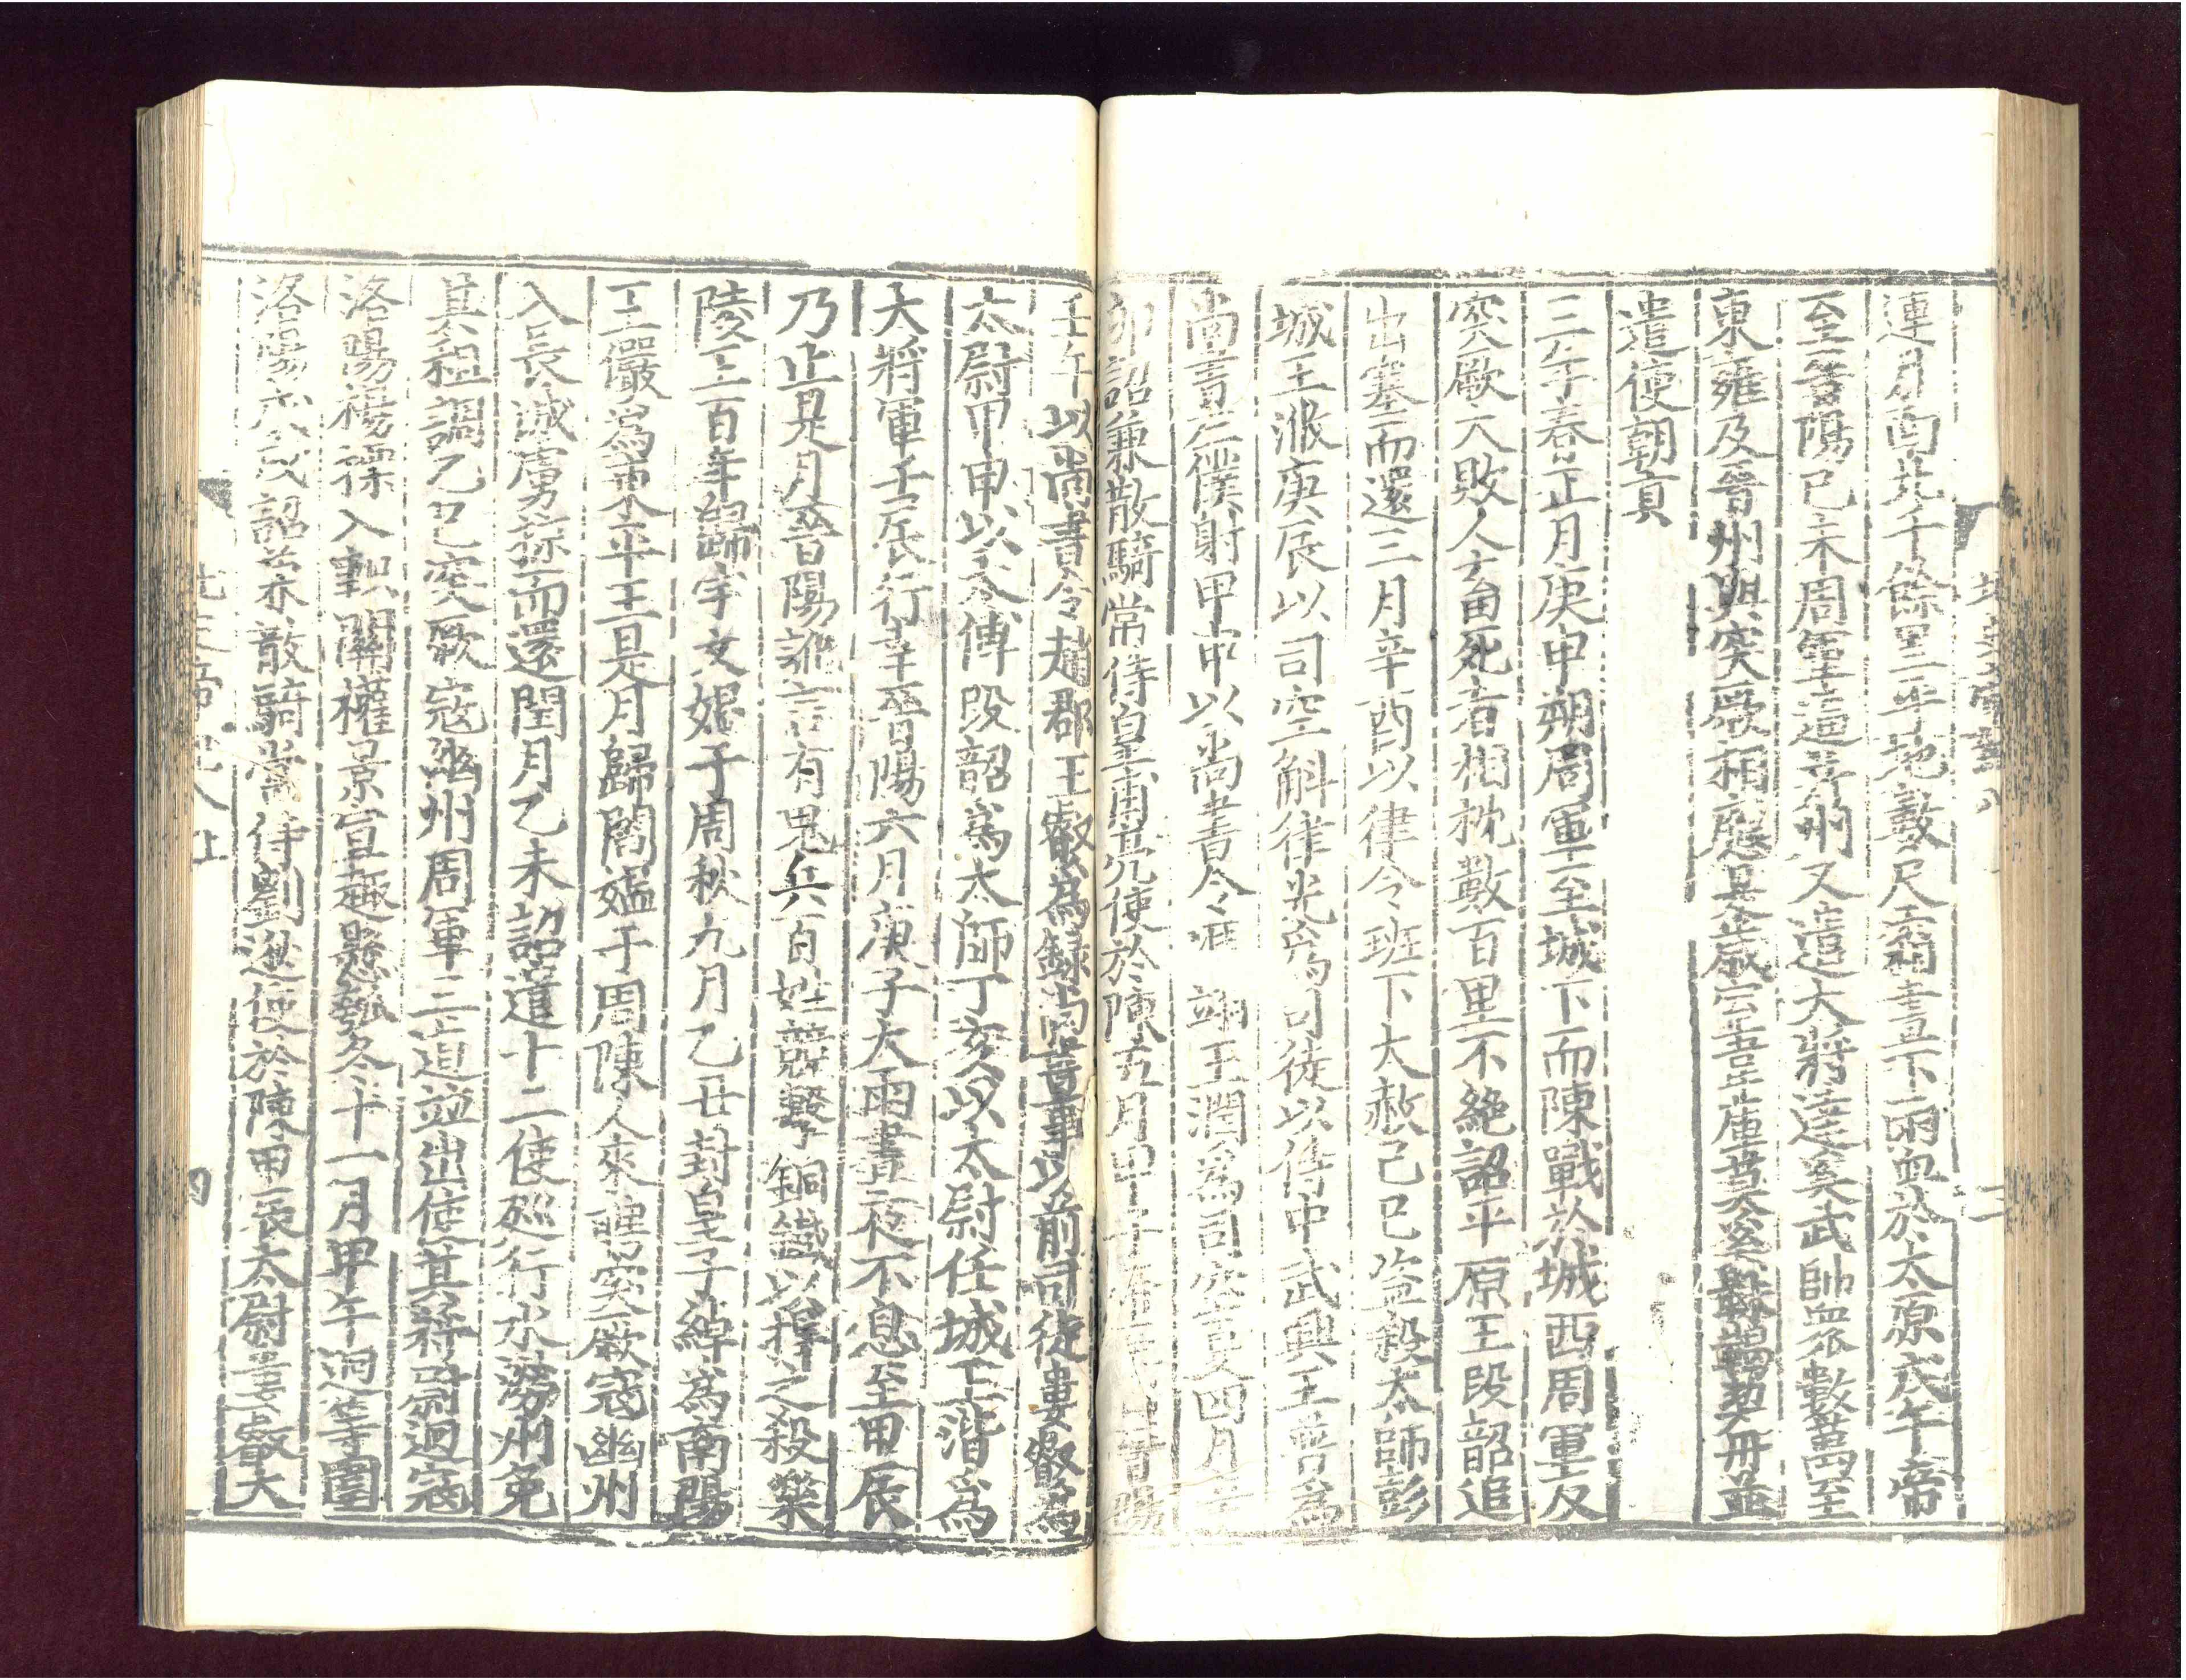 連月南北千餘里平地數尺霜晝下雨血於太原戊午帝
至晉陽己未周軍逼并州又遣大將達奚武帥衆數萬至
東雍及晉州與突厥相應是歲室韋庫莫奚靺鞨契丹並
遣使朝貢
三年春正月庚申朔周軍至城下而陳戰於城西周軍及
突厥大敗人畜死者相枕數百里不絶詔平原王段韶追
出塞而還三月辛酉以律令班下大赦己巳盜殺太師彭
城王浟庚辰以司空斛律光爲司徒以侍中武興王普爲
尚書左僕射甲申以尚書令馮翊王潤爲司空夏四月辛
卯詔兼散騎常侍皇甫亮使於陳五月甲子帝至自晉陽
壬午以尚書令趙郡王叡爲録尚書事以前司徒婁叡爲
太尉甲申以太傅段韶爲太師丁亥以太尉任城王湝爲
大將軍壬辰行幸晉陽六月庚子大雨晝夜不息至甲辰
乃止是月晉陽訛言有鬼兵百姓競擊銅鐵以捍之殺樂
陵王百年歸宇文媪于周秋九月乙丑封皇子綽爲南陽
王儼爲東平王是月歸閻媪于周陳人來聘突厥寇幽州
入長城虜掠而還閏月乙未詔遣十二使巡行水澇州免
其租調乙巳突厥寇幽州周軍三道並出使其將尉迥寇
洛陽楊檦入軹關權景宣趣懸瓠冬十一月甲午迥等圍
洛陽戊戌詔兼散騎常侍劉逖使於陳甲辰太尉婁叡大